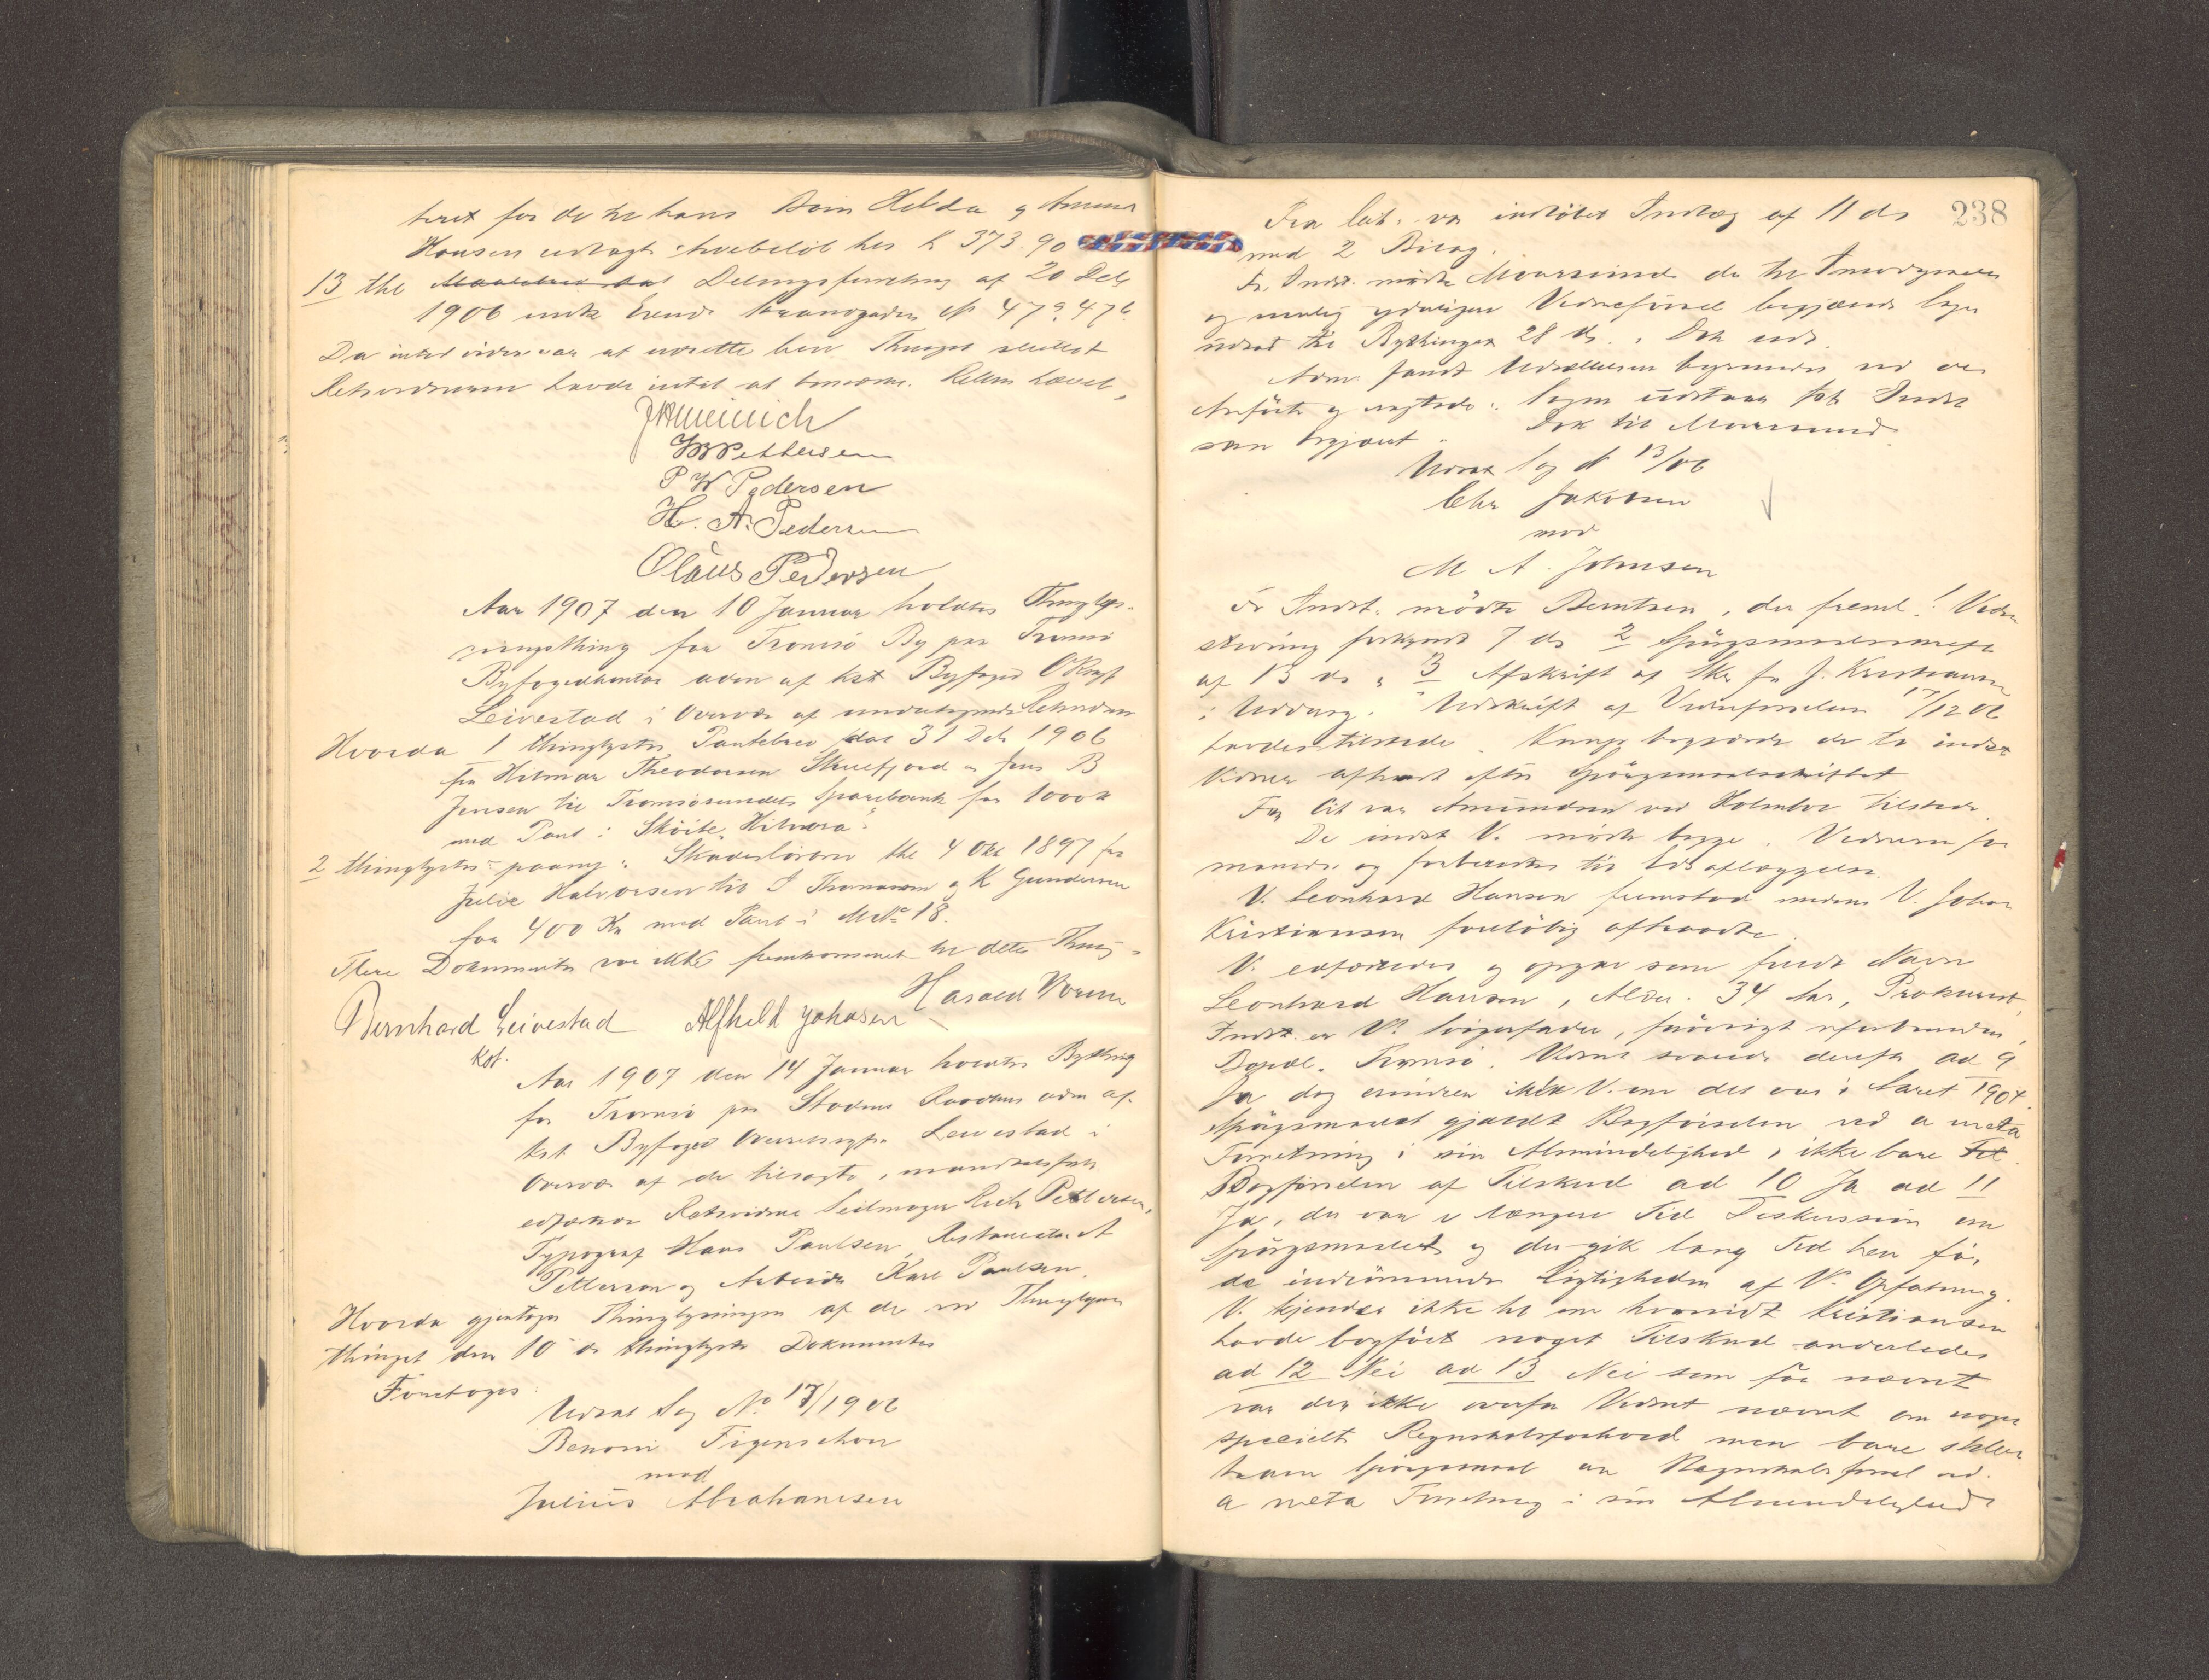 teret for de to hans Børn Hilda og Anna
Hansen udlagt Arvebeløb hos K 373.90
13 thl Delingsforretning af 20 Decb
1906 mellem Eiend. Strandgaden N 47a, 47b.
Da intet videre var at udrette blev Thinget sluttet
Retsvidnerne havde intet at bemærke. Retten hævet
W Pettersen
P W Pedersen
H. A. Pedersen
Olaus Pedersen
Aar 1907 den 10 Januar holdtes Thinglys-
ningsthing for Tromsø By paa Tromsø
Byfogedkontor adm af kst Byfoged
Leivestad i Overvær af undertegnede Retsvidner
Hvorda 1 thinglystes Pantebrev dat 31 Dcb 1906
fra Hilmar Theodorsen Skulsfjord og Jens B
Jensen til Tromsøsundets Sparebank for 1000 K
med Pant i Skøite "Hilmara"
2 thinglystes paany: Skadesløsbrev thl 4 Okt 1897 fra
Julie Halvorsen til J Thomassen og K Gundersen
for 400 Kr med Pant i MNo 18.
Flere Dokumenter var ikke fremkommet til dette Thing
Bernhard Leivestad Alfhild Johansen Harald
kst.
Aar 1907 den 14 Januar holdtes Bything
for Tromsø paa Stadens Raadhus adm af
kst Byfoged Overretssagf. Leivestad i
Overvær af de tilsagte, mandtalsførte
edfæstede Retsvidne Seilmager Pettersen,
Typograf Hans Paulsen, A
Petterson og Arbeider Karl Paulsen.
Hvorda gjentoges Thinglysningen af de ved Thinglysnings
thinget den 10 ds thinglyste Dokumenter
Foretoges:
Udsat Sag No 17/1906
Benoni Figenschou
mod
Julius Abrahamsen
238
Fra Cit. var indløbet Indlæg af 11 ds
med 2 Bilag.
Fr. Indst. mødte Moursund der til Imødegaaelse
og mulig yderligere Vidneførsel begjærede Sagen
udsat til Bythinget 28 ds.
Adm. fandt Udsættelsen begrundet ved det
Anførte og eragtede: Sagen udstaar
som begjæret. Dok til Moursund.
Udsat Sag N 13/06
Chr Jakobsen
mod
M A. Johnsen
Fr Indst. mødte Berntsen, der freml. 1 Vidne
stevning forkyndt 7 ds 2 Spørgsmaalsskrift
af 13 ds og 3 Afskrift af Skr fra J. Kristiansen
i Uddrag. Udskrift af Vidneførselen 17/12 06
havdes tilstede. begjærede de to indst
Vidner afhørt efter Spørgsmaalsskriftet
For Cit var Amundsen ved Holmboe tilstede.
De indst V. mødte begge. Vidnerne for
manedes og forberedtes til Edsaflæggelse.
V. Leonhard Hansen fremstod medens V. Johan
Kristiansen foreløbig aftraadte.
V. edfæstedes og opgav som fuldt Navn
Leonhard Hansen, Alder. 34 Aar, Prokurist,
Indst. er V's Svigerfader, forøvrigt uforbunden,
Bopæl. Tromsø. Vidnet svarede derefter ad 9
Ja dog erindrer ikke V. om det var i Aaret 1904.
Spørgsmaalet gjældt Bogførselen ved a meta
Forretning i sin Almindelighed, ikke bare
Bogførselen af Tilskud ad 10 Ja ad 11
Ja, der var i længere Tid Diskussion om
Spørgsmaalet og der gik lang Tid hen før
de indrømmede Rigtigheden af V. Opfatning.
V. kjender ikke til om hvorvidt Kristiansen
havde bogført noget Tilskud anderledes
ad 12 Nei ad 13 Nei som før nævnt
var der ikke overfor Vidnet nævnt om noget
specielt Regnskabsforhold men bare
Spørgsmaal om Regnskabsførsel ved
a meta Forretning i sin Almindelighed